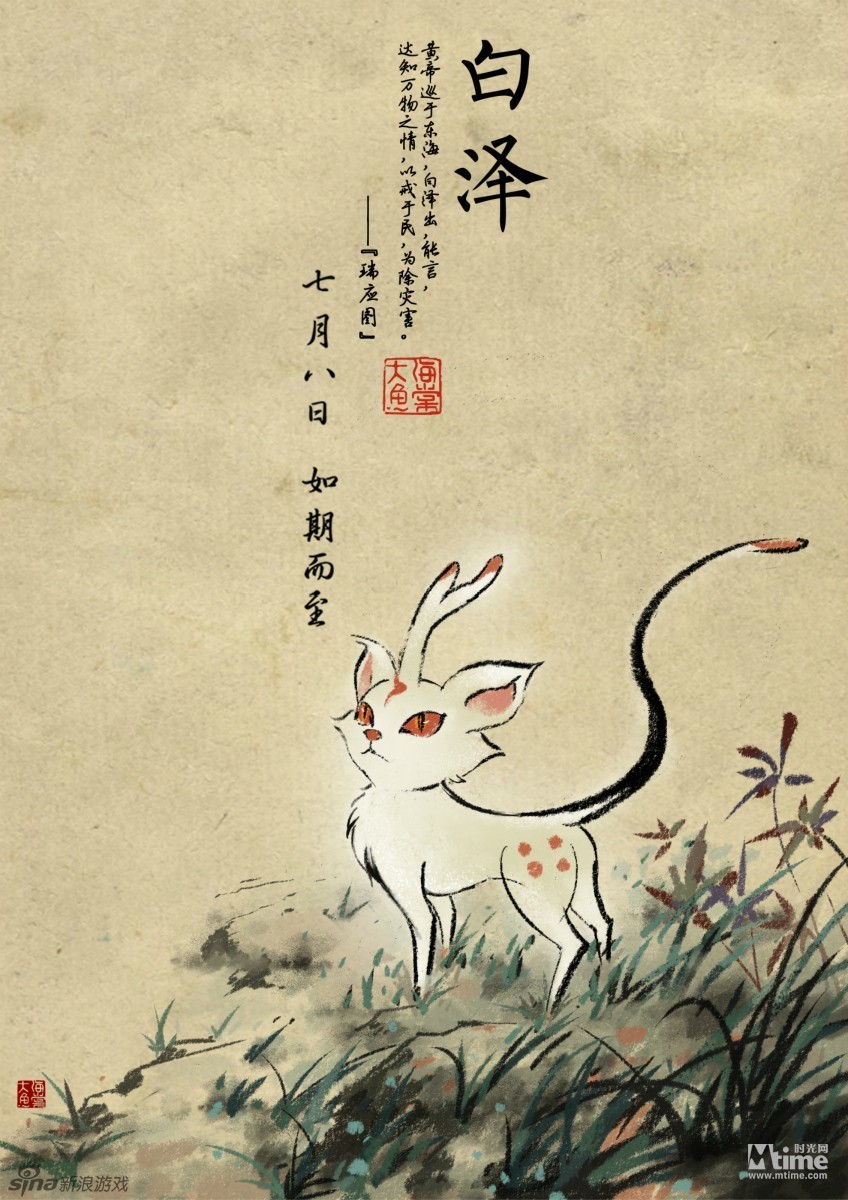 白泽
黄帝巡于东海，白泽出，能言，
达知万物之情，以戒于民，为除灾害。
——『瑞应图』
海棠
大鱼
七月八日 如期而至
海棠
大鱼
sina新浪游戏
Mtime时光网
www.mtime.com